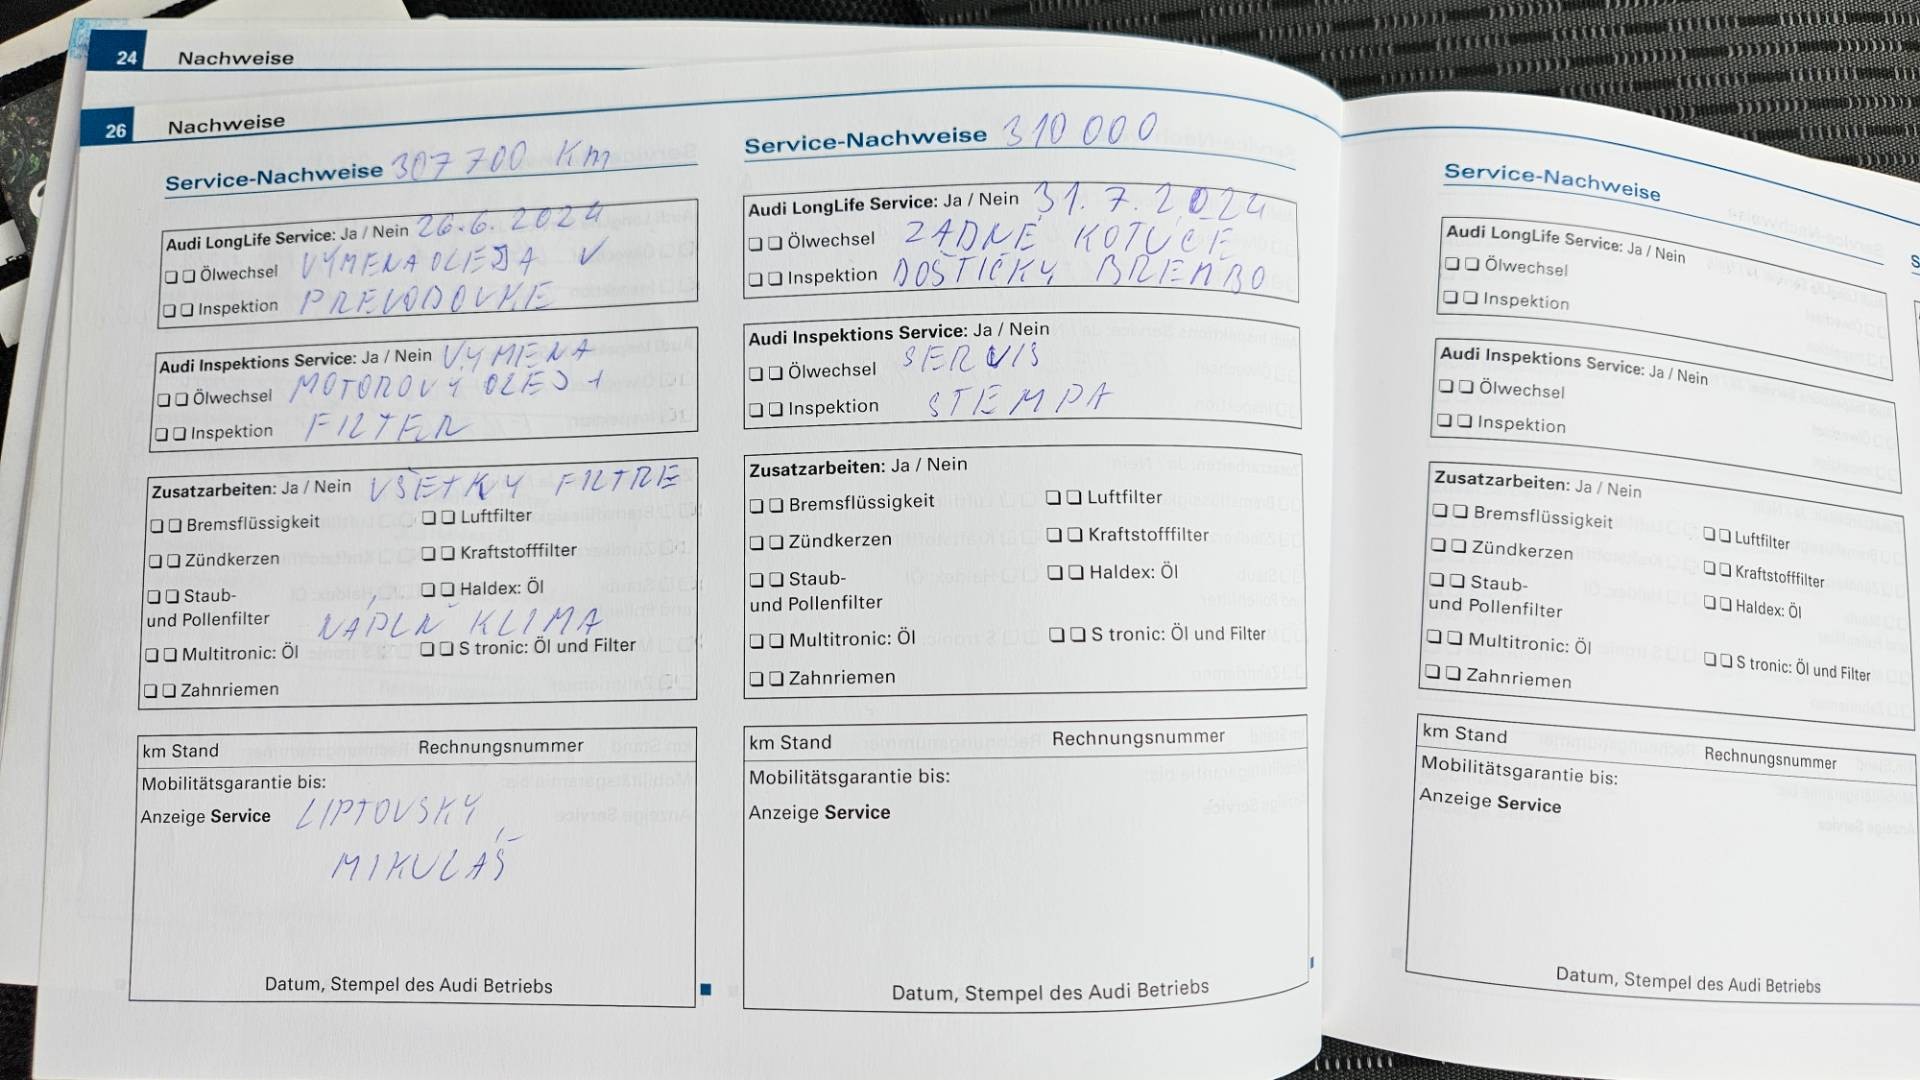 24 Nachweise
26 Nachweise
Service-Nachweise 307 700 Km
Audi LongLife Service: Ja / Nein 26.6.2024
❑ ❑ Ölwechsel VÝMENA OLEJA V
❑ ❑ Inspektion PREVODOVKE
Audi Inspektions Service: Ja / Nein VÝMENA
❑ ❑ Ölwechsel MOTOROVÝ OLEJ +
❑ ❑ Inspektion FILTER
Zusatzarbeiten: Ja / Nein VŠETKY FILTRE
❑ ❑ Bremsflüssigkeit ❑ ❑ Luftfilter
❑ ❑ Zündkerzen ❑ ❑ Kraftstofffilter
❑ ❑ Staub- ❑ ❑ Haldex: Öl
und Pollenfilter NÁPLŇ KLIMA
❑ ❑ Multitronic: Öl ❑ ❑ S tronic: Öl und Filter
❑ ❑ Zahnriemen
km Stand Rechnungsnummer
Mobilitätsgarantie bis:
Anzeige Service LIPTOVSKÝ
MIKULÁŠ
Datum, Stempel des Audi Betriebs
Service-Nachweise 310 000
Audi LongLife Service: Ja / Nein 31.7.2024
❑ ❑ Ölwechsel ZADNÉ KOTÚČE
❑ ❑ Inspektion DOŠTIČKY BREMBO
Audi Inspektions Service: Ja / Nein
❑ ❑ Ölwechsel SERVIS
❑ ❑ Inspektion STEMPA
Zusatzarbeiten: Ja / Nein
❑ ❑ Bremsflüssigkeit ❑ ❑ Luftfilter
❑ ❑ Zündkerzen ❑ ❑ Kraftstofffilter
❑ ❑ Staub- ❑ ❑ Haldex: Öl
und Pollenfilter
❑ ❑ Multitronic: Öl ❑ ❑ S tronic: Öl und Filter
❑ ❑ Zahnriemen
km Stand Rechnungsnummer
Mobilitätsgarantie bis:
Anzeige Service
Datum, Stempel des Audi Betriebs
Service-Nachweise
Audi LongLife Service: Ja / Nein
❑ ❑ Ölwechsel
❑ ❑ Inspektion
Audi Inspektions Service: Ja / Nein
❑ ❑ Ölwechsel
❑ ❑ Inspektion
Zusatzarbeiten: Ja / Nein
❑ ❑ Bremsflüssigkeit ❑ ❑ Luftfilter
❑ ❑ Zündkerzen ❑ ❑ Kraftstofffilter
❑ ❑ Staub- ❑ ❑ Haldex: Öl
und Pollenfilter
❑ ❑ Multitronic: Öl ❑ ❑ S tronic: Öl und Filter
❑ ❑ Zahnriemen
km Stand Rechnungsnummer
Mobilitätsgarantie bis:
Anzeige Service
Datum, Stempel des Audi Betriebs